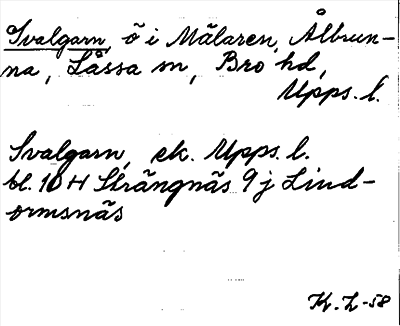 Svalgarn, ö i Mälaren, Ålbrun-
na, Låssa sn, Bro hd,
Upps. l.
Svalgarn, ek. Upps. l.
bl. 10 H Strängnäs 9 j Lind-
ormsnäs
K. L -58